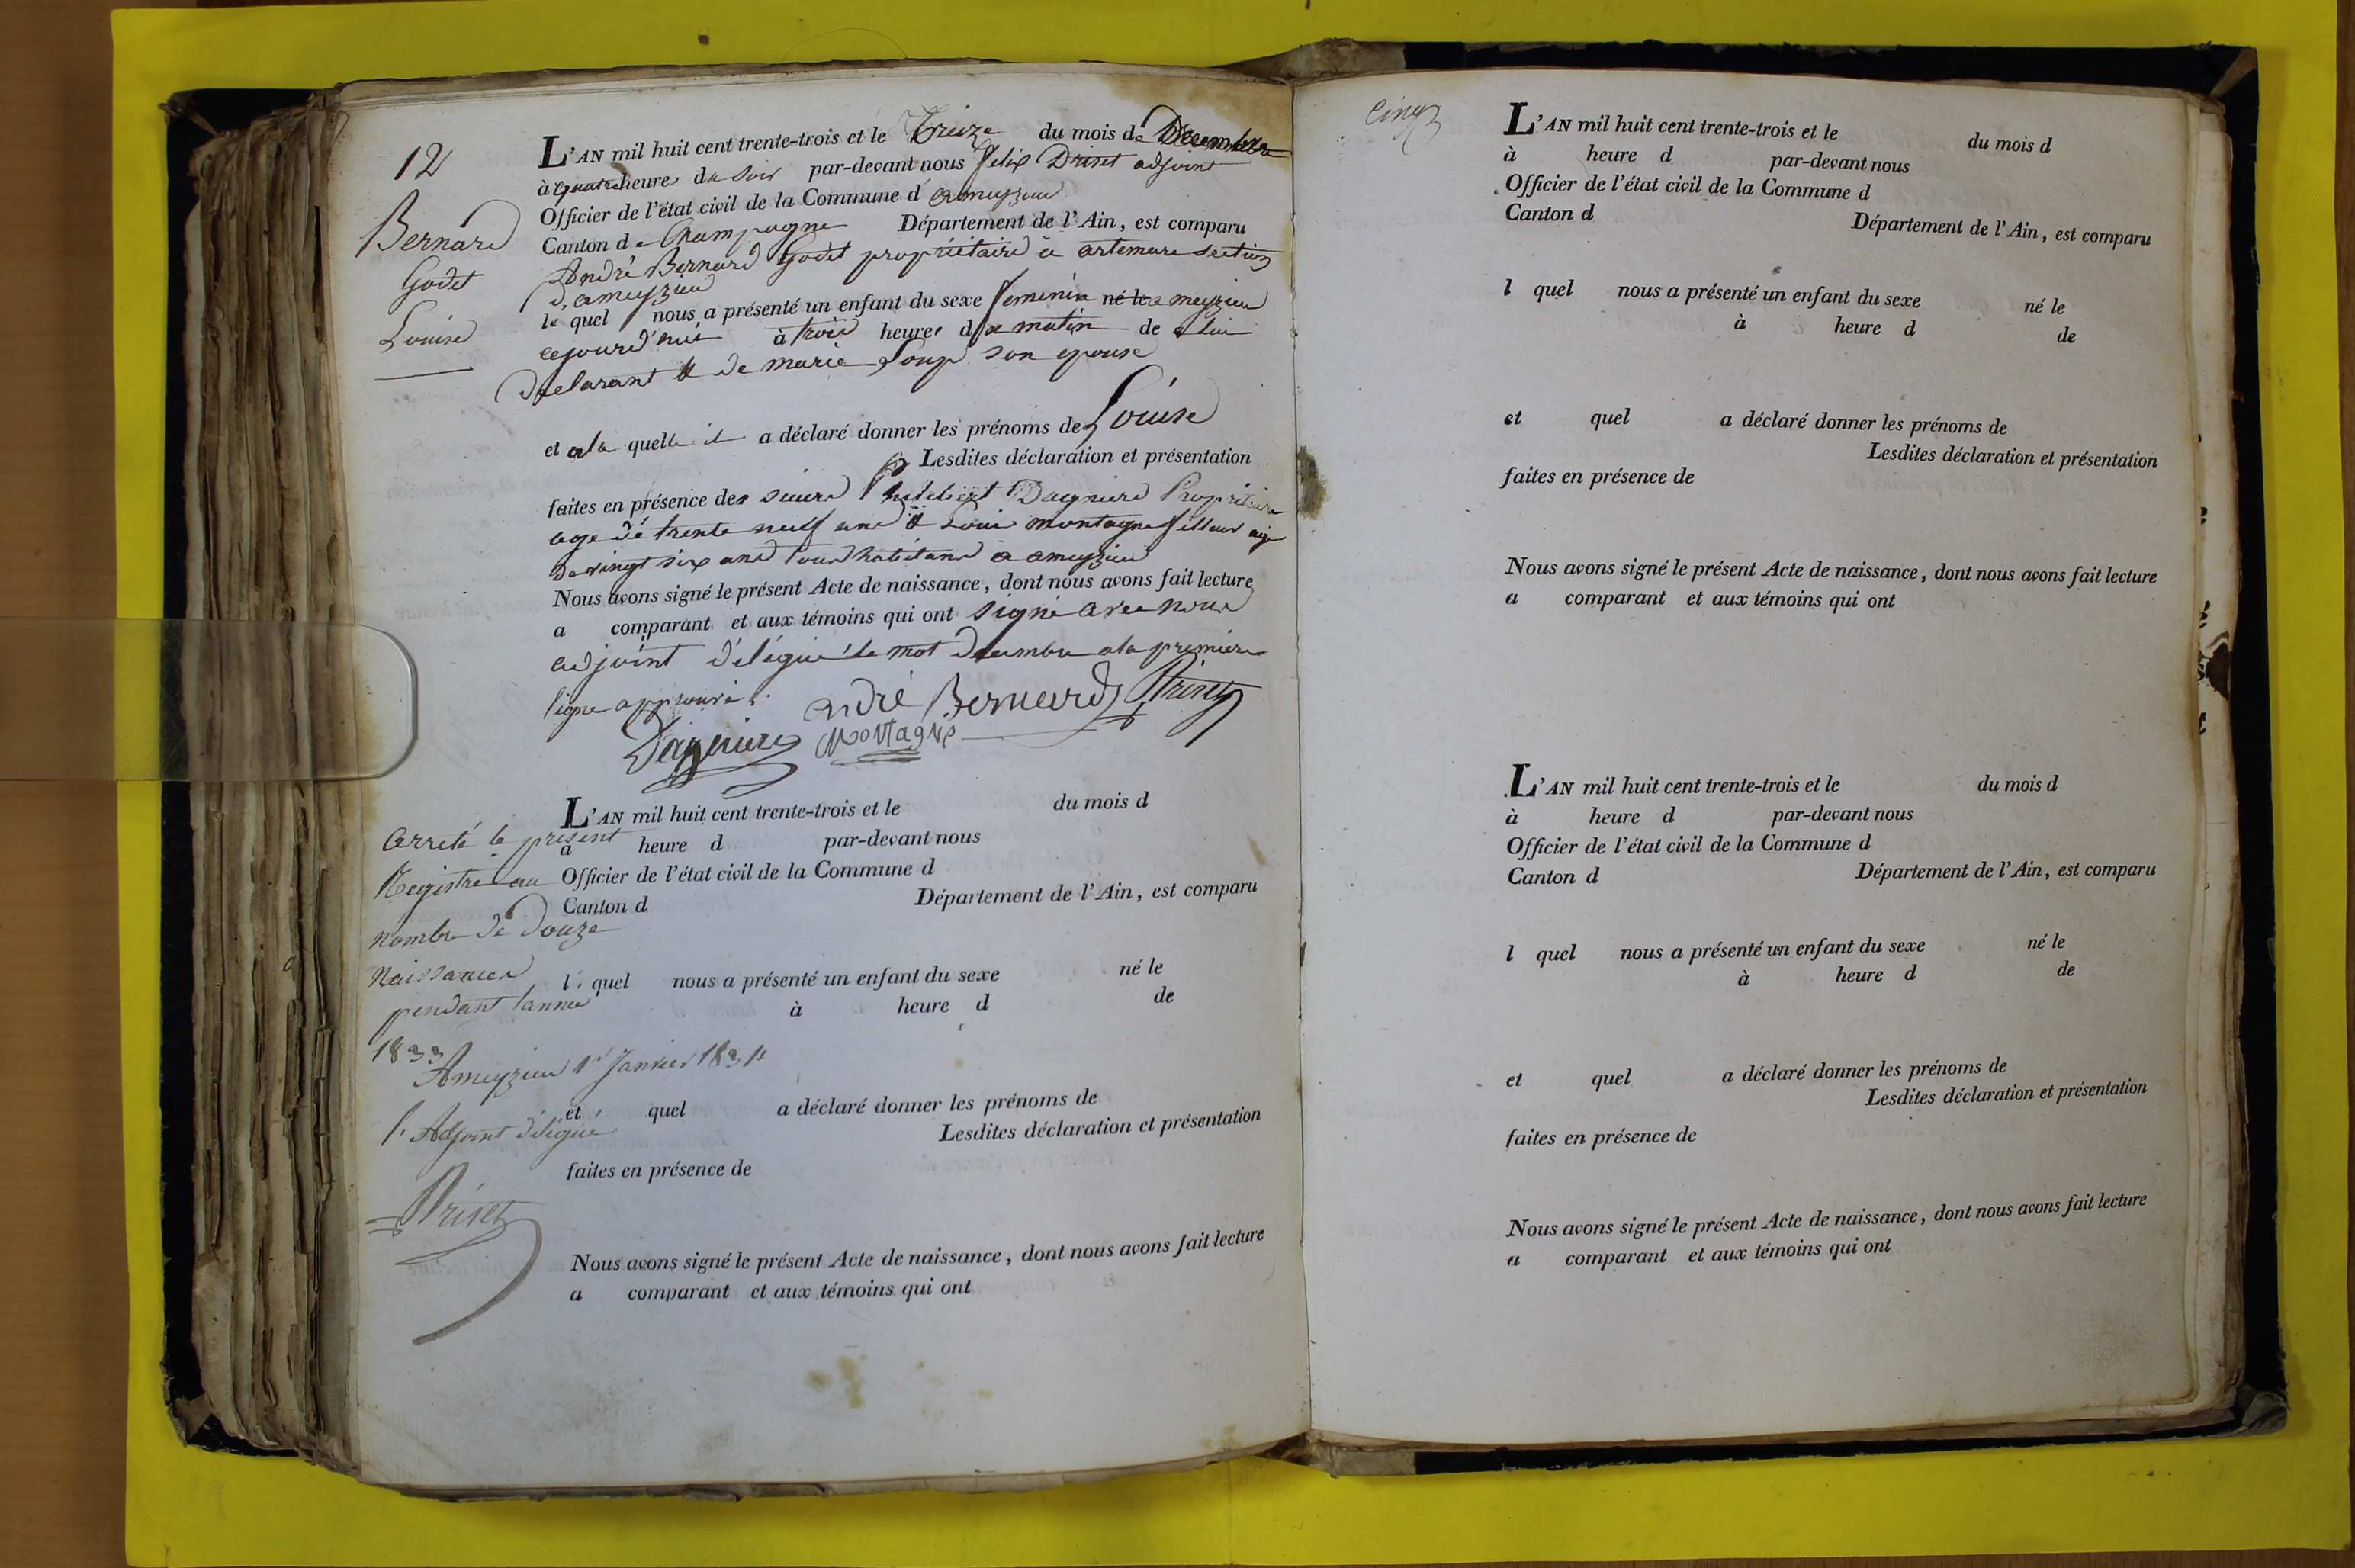 12
Bernard
Godet
Louise
L'AN mil huit cent trente-trois et le Treize du mois de Decembre
à quatre heures du soir par-devant nous Felix Driset adjoint
Officier de l'état civil de la Commune d'ameyzieu
Canton de Champagne Département de l'Ain, est comparu
André Bernard Godet propriétaire à artemare section
d'ameyzieu
le quel nous a présenté un enfant du sexe feminin né le a meyzieu
cejourd'hui à trois heures du matin de lui
declarant et de marie Loup son epouse
et a la quelle il a déclaré donner les prénoms de Louise
Lesdites déclaration et présentation
faites en présence des sieurs Philibert Dagnieres Propriétaire
age de trente neuf ans et Louis montagne tilleur age
de vingt six ans tous habitans a ameyzieu
Nous avons signé le présent Acte de naissance, dont nous avons fait lecture
a comparant et aux témoins qui ont signé avec nous
adjoint délégué le mot decembre a la première
ligne approuvé.
andré Bernard Driset
Dagnieres Montagne
L'AN mil huit cent trente-trois et le du mois d
à heure d par-devant nous
Officier de l'état civil de la Commune d
Canton d Département de l'Ain, est comparu
l quel nous a présenté un enfant du sexe né le
à heure d de
et quel a déclaré donner les prénoms de
Lesdites déclaration et présentation
faites en présence de
Nous avons signé le présent Acte de naissance, dont nous avons fait lecture
a comparant et aux témoins qui ont
arreté le présent
Registre au
nombre de Douze
Naissances
pendant l'année
1833
Ameyzieu 1er Janvier 1834
l'Adjoint délégué
Driset
Cinq
L'AN mil huit cent trente-trois et le du mois d
à heure d par-devant nous
Officier de l'état civil de la Commune d
Canton d Département de l'Ain, est comparu
l quel nous a présenté un enfant du sexe né le
à heure d de
et quel a déclaré donner les prénoms de
Lesdites déclaration et présentation
faites en présence de
Nous avons signé le présent Acte de naissance, dont nous avons fait lecture
a comparant et aux témoins qui ont
L'AN mil huit cent trente-trois et le du mois d
à heure d par-devant nous
Officier de l'état civil de la Commune d
Canton d Département de l'Ain, est comparu
l quel nous a présenté un enfant du sexe né le
à heure d de
et quel a déclaré donner les prénoms de
Lesdites déclaration et présentation
faites en présence de
Nous avons signé le présent Acte de naissance, dont nous avons fait lecture
a comparant et aux témoins qui ont